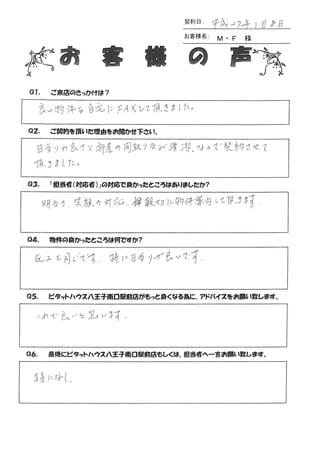 契約日: 平成27年1月8日
お客様名: M・F 様
お客様の声
Q1. ご来店のきっかけは?
良い物件を自宅にFAXして頂きました。
Q2. ご契約を頂いた理由をお聞かせ下さい。
日当りの良さと部屋の間取り及び清潔、なので契約させて
頂きました。
Q3. 「担当者(対応者)」の対応で良かったところはありましたか?
明るさ、笑顔の対応、親切に物件案内して頂きます
Q4. 物件の良かったところは何ですか?
Q2と同じです。特に日当りが良いです。
Q5. ピタットハウス八王子南口駅前店がもっと良くなる為に、アドバイスをお願い致します。
これで良いと思います。
Q6. 最後にピタットハウス八王子南口駅前店もしくは、担当者へ一言お願い致します。
特になし。